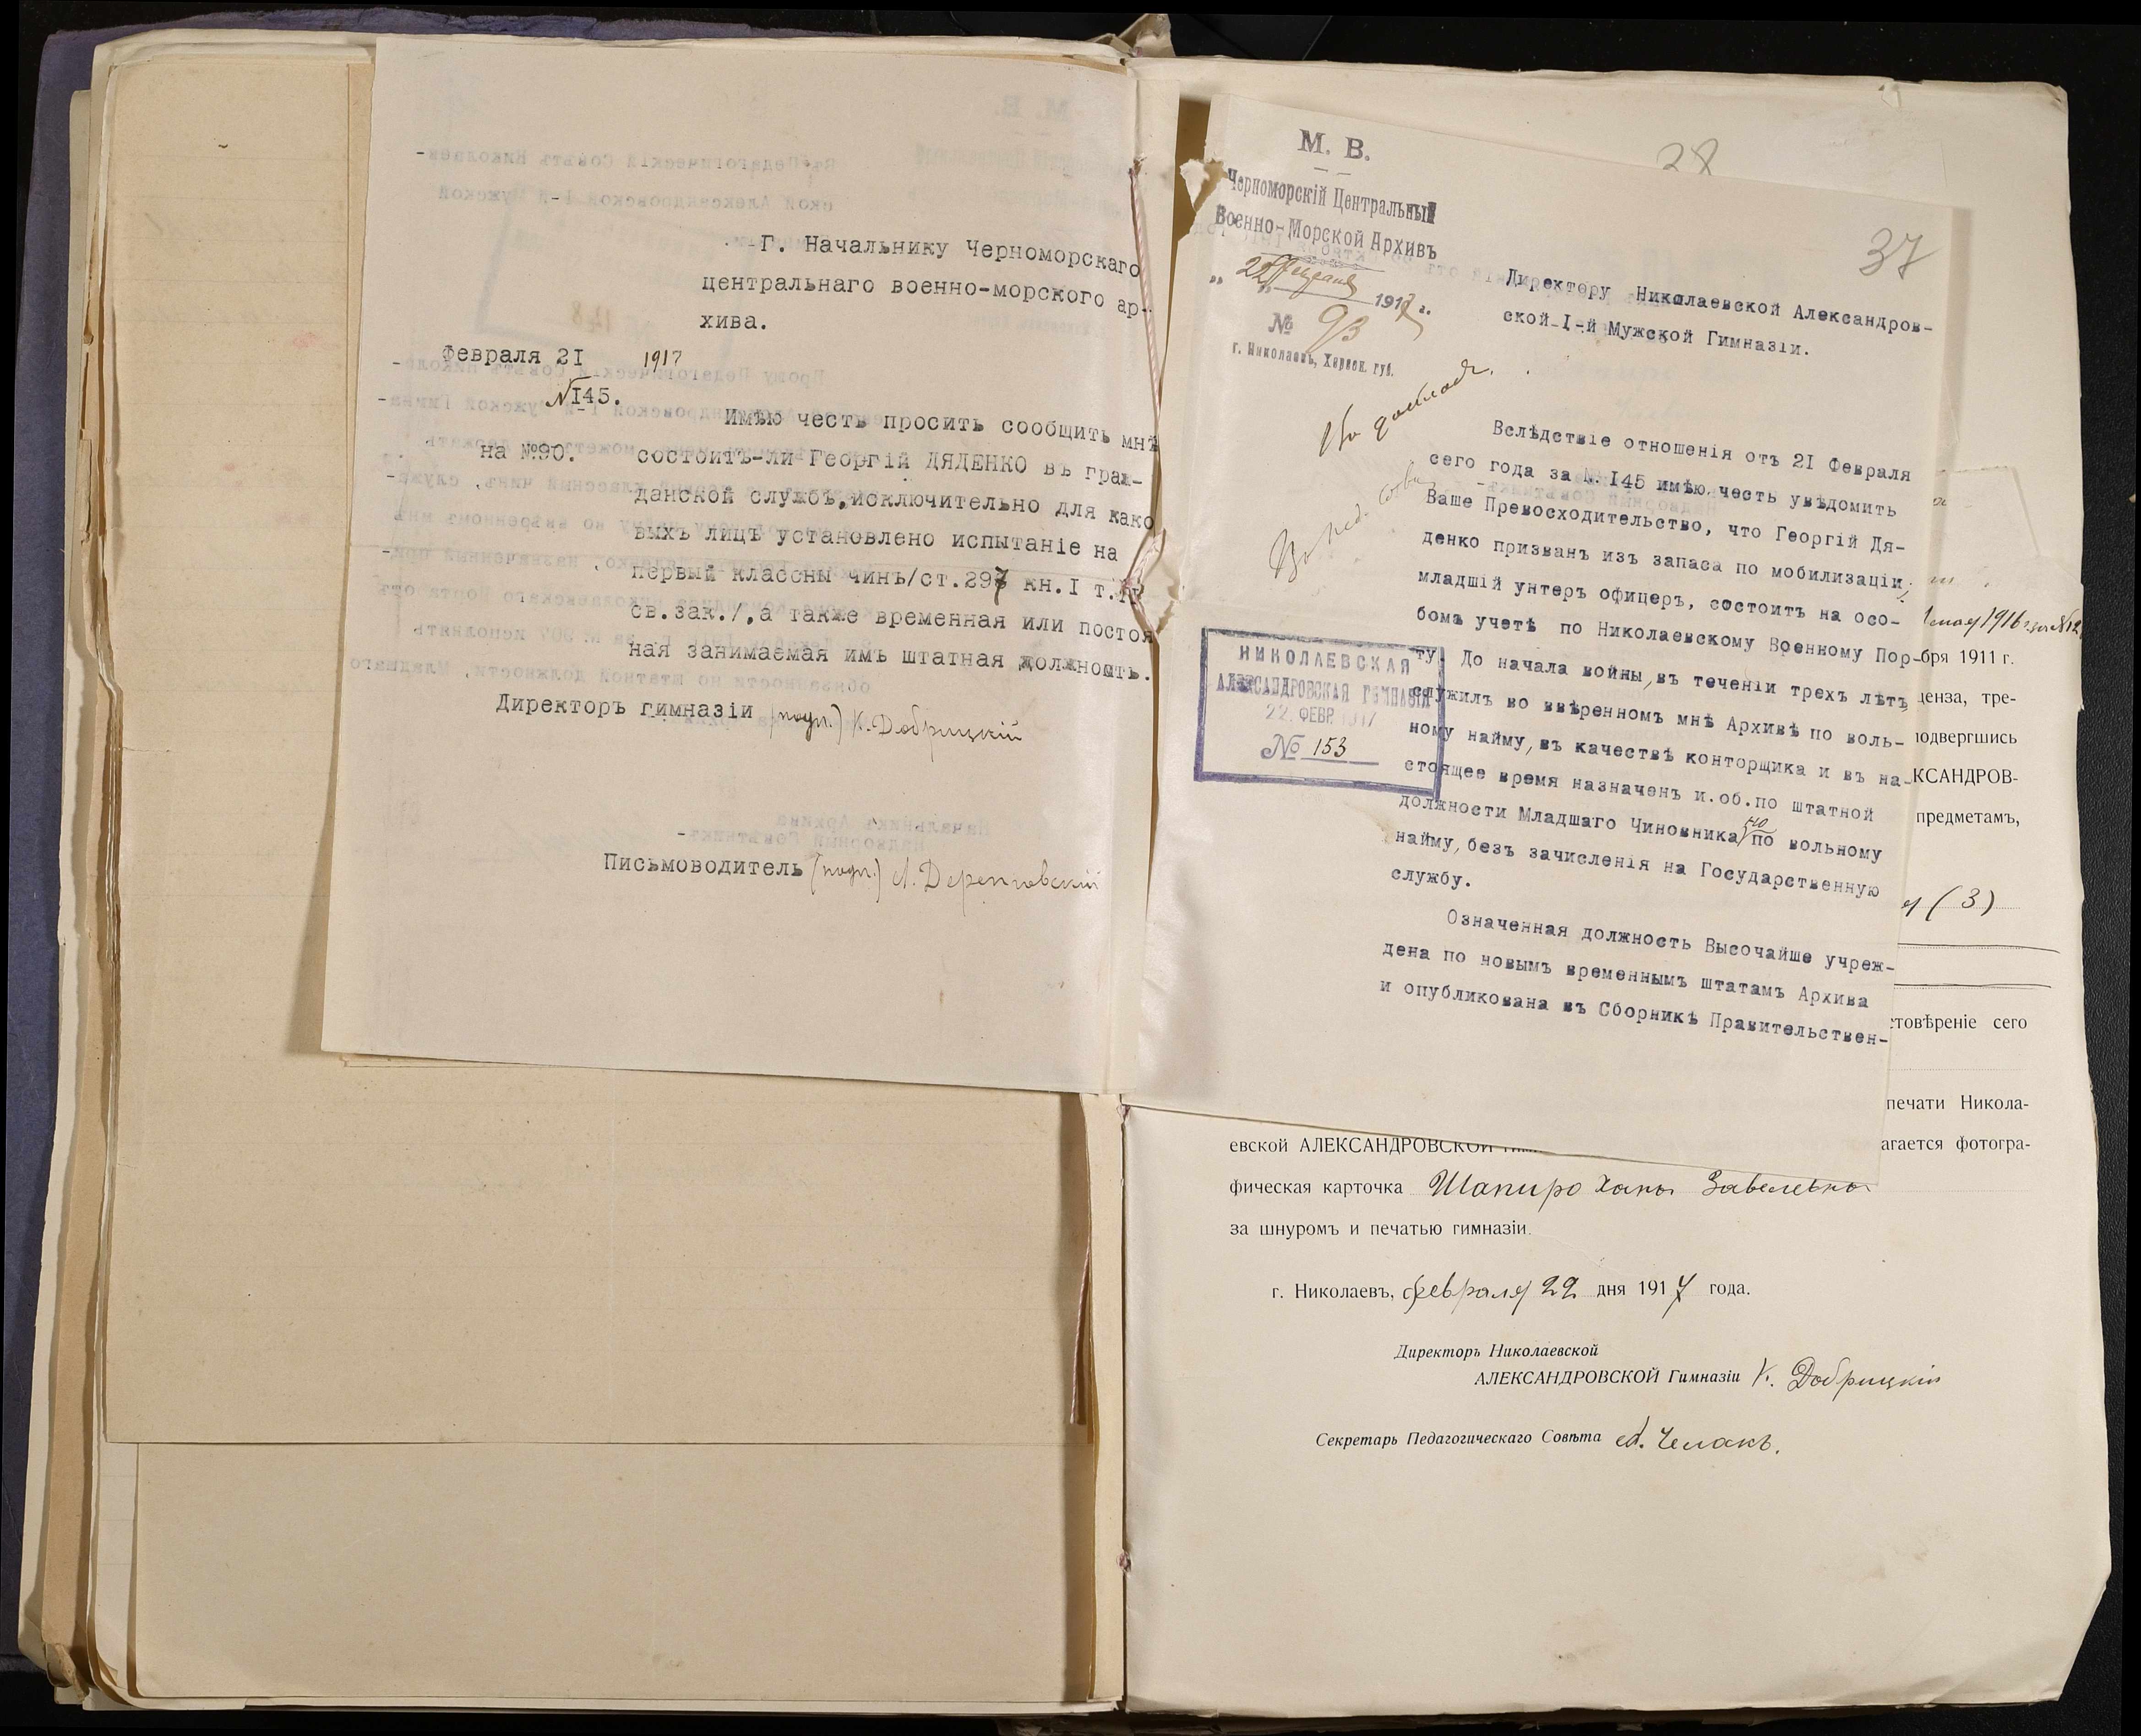 Г. Начальнику Черноморскаго
центральнаго военно-морского ар-
хива.
Февраля 2I 1917
№ I45.
на №90.
Имѣю честь просить сообщить мнѣ
состоитъ-ли Георгій ДЯДЕНКО въ граж-
данской службѣ, исключительно для како
выхъ лицъ установлено испытаніе на
первый классны чинъ/ст.297 кн.I т.IV
св.зак./,а также временная или постоя
ная занимаемая имъ штатная должность.
Директоръ гимназіи (подп.) К. Добрицкій
Письмоводитель (подп.)
28
37
М. В.
Черноморскій Центральный
Военно-Морской Архивъ
„ 22 „ Февраля 1917 г.
№ 93
г. Николаевъ, Херсон. губ.
Директору Николаевской Александров-
ской I-й Мужской Гимназіи.
Въ пед. Совѣт
Вслѣдствіе отношенія отъ 2I Февраля
сего года за № I45 имѣю честь увѣдомить
Ваше Превосходительство, что Георгій Дя-
денко призванъ изъ запаса по мобилизаціи,
младшій унтеръ офицеръ, состоитъ на осо-
бомъ учетѣ по Николаевскому Военному Пор-
ту. До начала войны, въ теченіи трехъ лѣтъ,
служилъ во ввѣренномъ мнѣ Архивѣ по воль-
ному найму, въ качествѣ конторщика и въ на-
стоящее время назначенъ и.об.по штатной
должности Младшаго Чиновника, но по вольному
найму, безъ зачисленія на Государственную
службу.
Означенная должность Высочайше учреж-
дена по новымъ временнымъ штатамъ Архива
и опубликована въ Сборникѣ Правительствен-
НИКОЛАЕВСКАЯ
АЛЕКСАНДРОВСКАЯ ГИМНАЗІЯ
22. ФЕВР. 1917
№ 153
мая 1916 г. за №12
бря 1911 г.
ценза, тре-
подвергшись
КСАНДРОВ-
предметамъ,
(3)
стовѣреніе сего
печати Никола-
евской АЛЕКСАНДРОВСКОЙ агается фотогра-
фическая карточка Шапиро Ханы Завелевны
за шнуромъ и печатью гимназіи.
г. Николаевъ, февраля 22 дня 1917 года.
Директоръ Николаевской
АЛЕКСАНДРОВСКОЙ Гимназіи К. Добрицкій
Секретарь Педагогическаго Совѣта